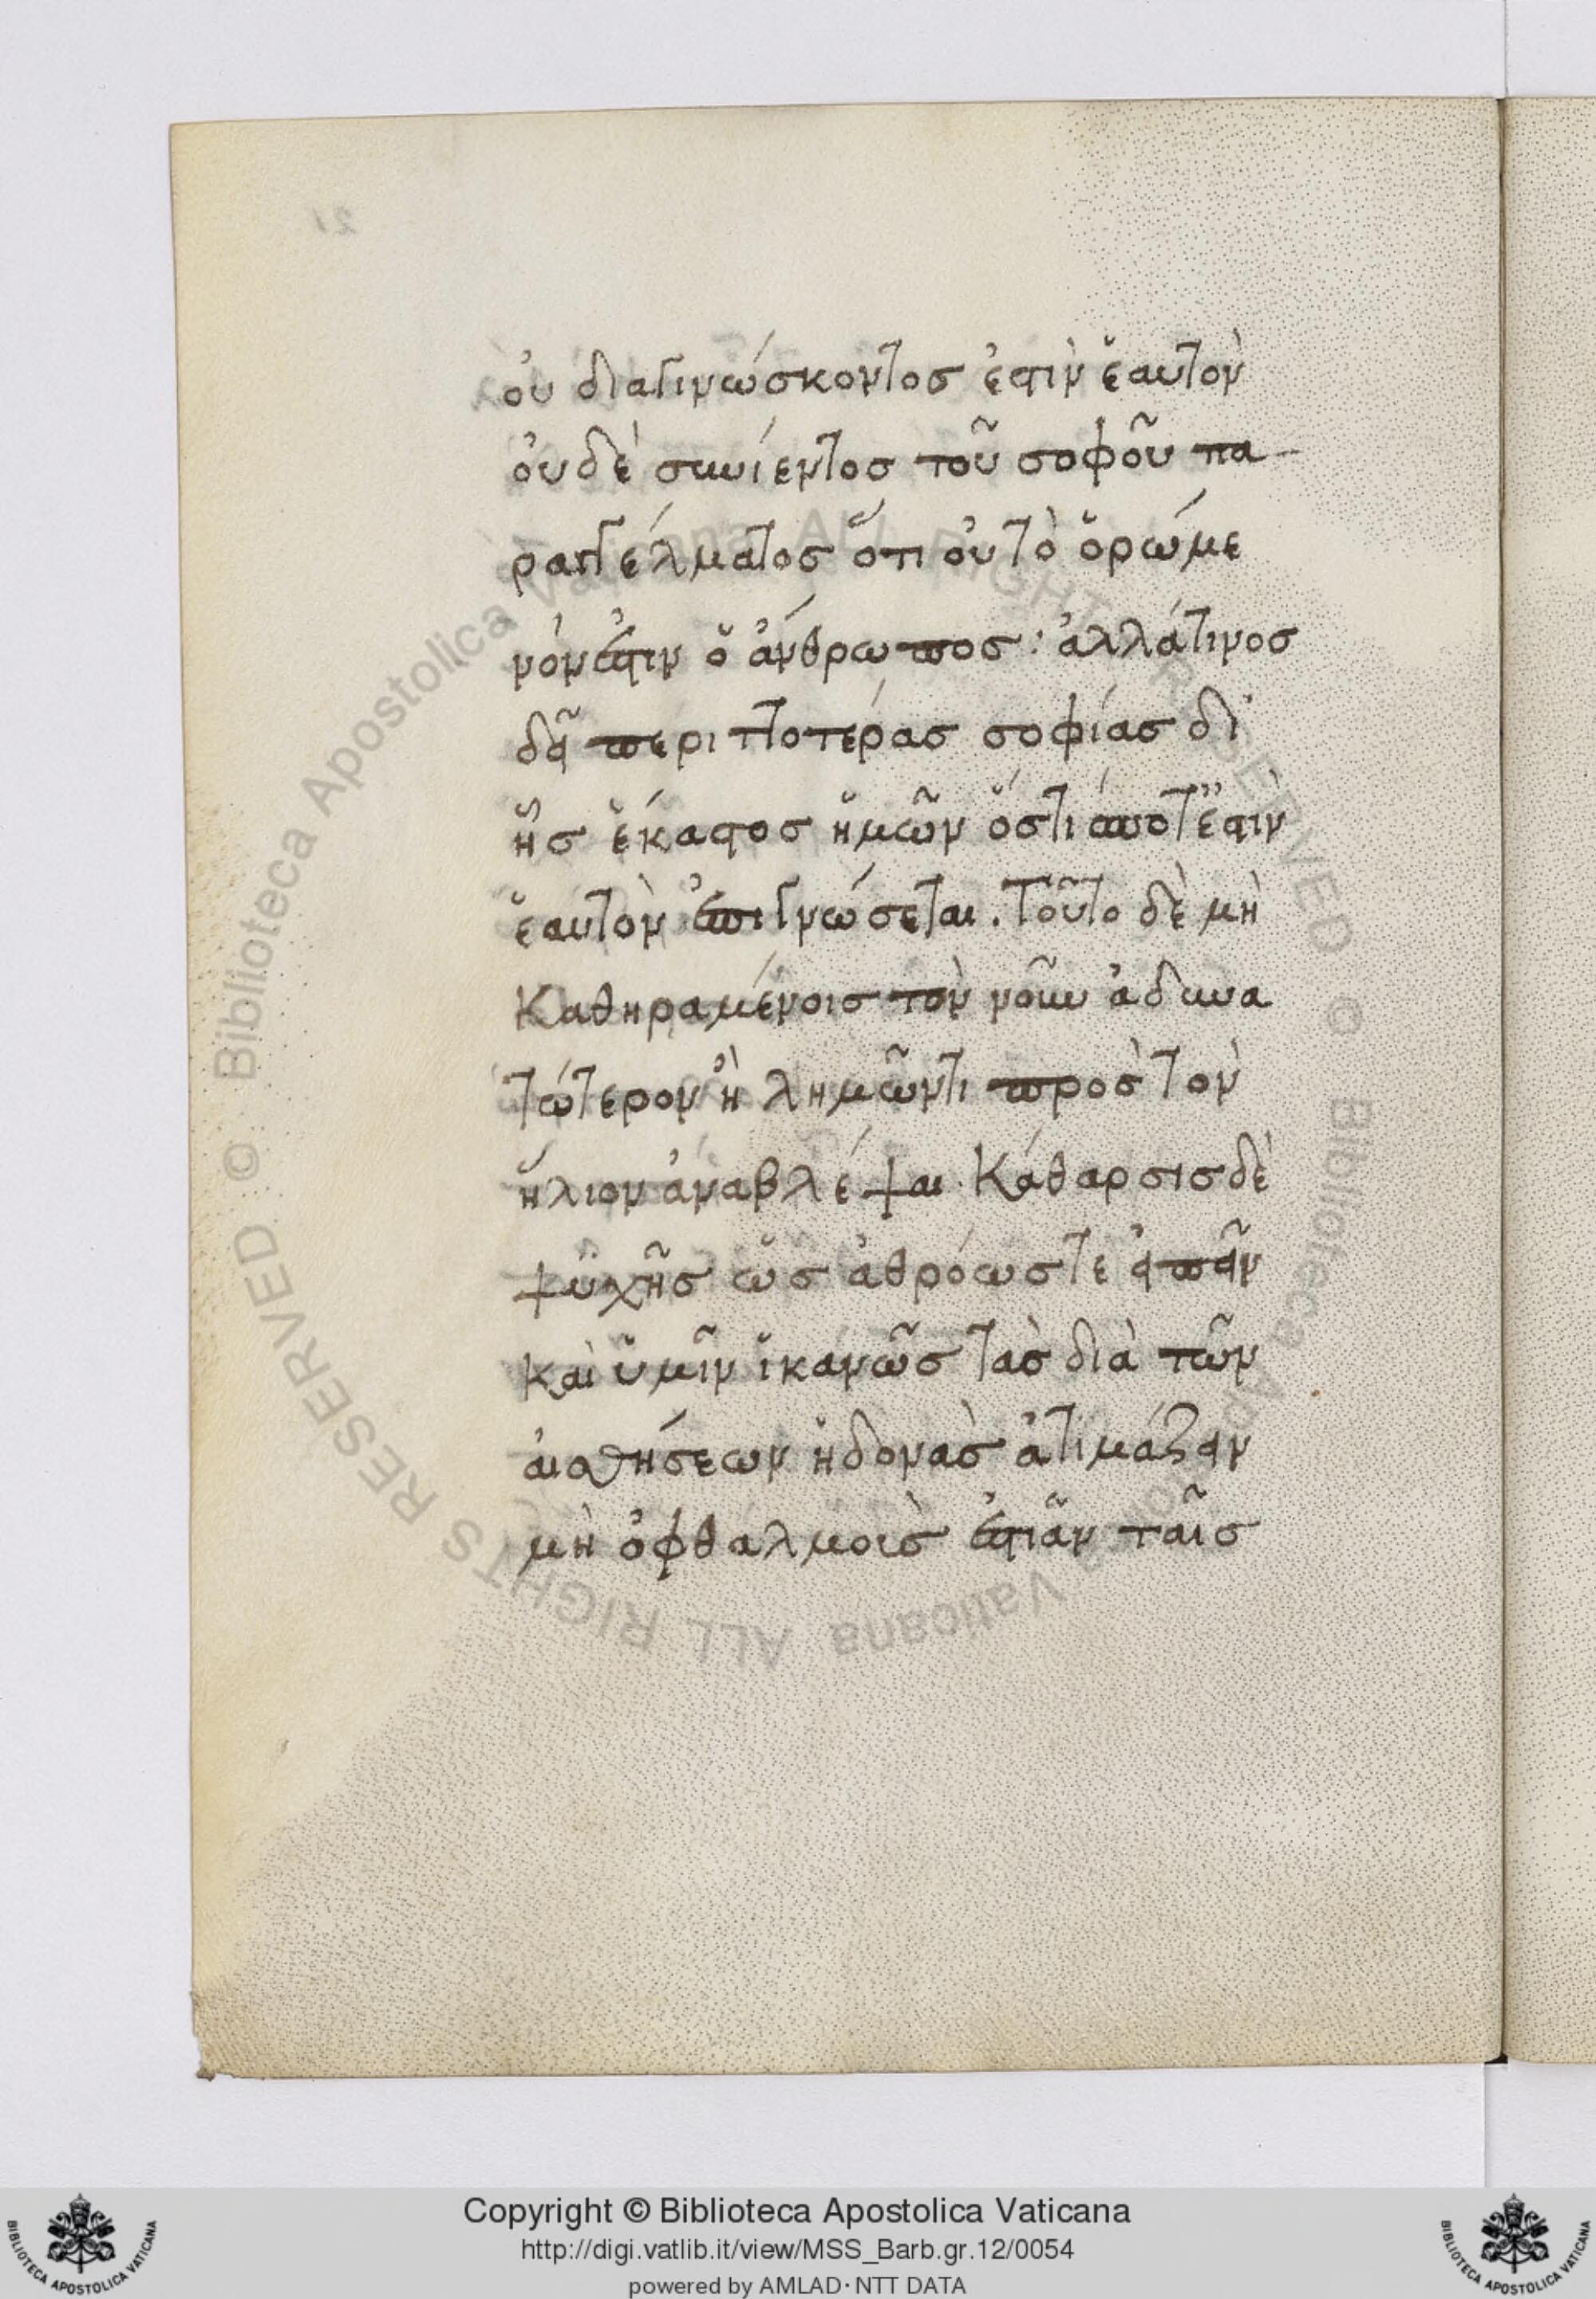 οὐ διαγινώσκοντος ἐστὶν ἑαυτὸν
οὐδὲ συνίεντος τοῦ σοφοῦ πα-
ραγγέλματος ὅτι οὐ τὸ ὁρώμε
νόν ἐστιν ὁ ἄνθρωπος: ἀλλά τινος
δεῖ περιττοτέρας σοφίας δι'
ἧς ἕκαστος ἡμῶν ὅστις ποτέ ἐστιν
ἑαυτὸν ἐπιγνώσεται. Τοῦτο δὲ μὴ
Καθηραμένοις τὸν νοῦν ἀδυνα
τώτερον ἢ λημῶντι πρὸς τὸν
ἥλιον ἀναβλέψαι. Κάθαρσις δὲ
ψυχῆς ὡς ἀθρόως τε εἰπεῖν
καὶ ὑμῖν ἱκανῶς τὰς διὰ τῶν
αἰσθήσεων ἡδονὰς ἀτιμάζειν
μὴ ὀφθαλμοὶς ἐστιᾶν ταῖς
21
© Biblioteca Apostolica Vaticana ALL RIGHTS RESERVED © Biblioteca Apostolica Vaticana ALL RIGHTS RESERVED
Copyright © Biblioteca Apostolica Vaticana
http://digi.vatlib.it/view/MSS_Barb.gr.12/0054
powered by AMLAD·NTT DATA
BIBLIOTECA APOSTOLICA VATICANA
BIBLIOTECA APOSTOLICA VATICANA